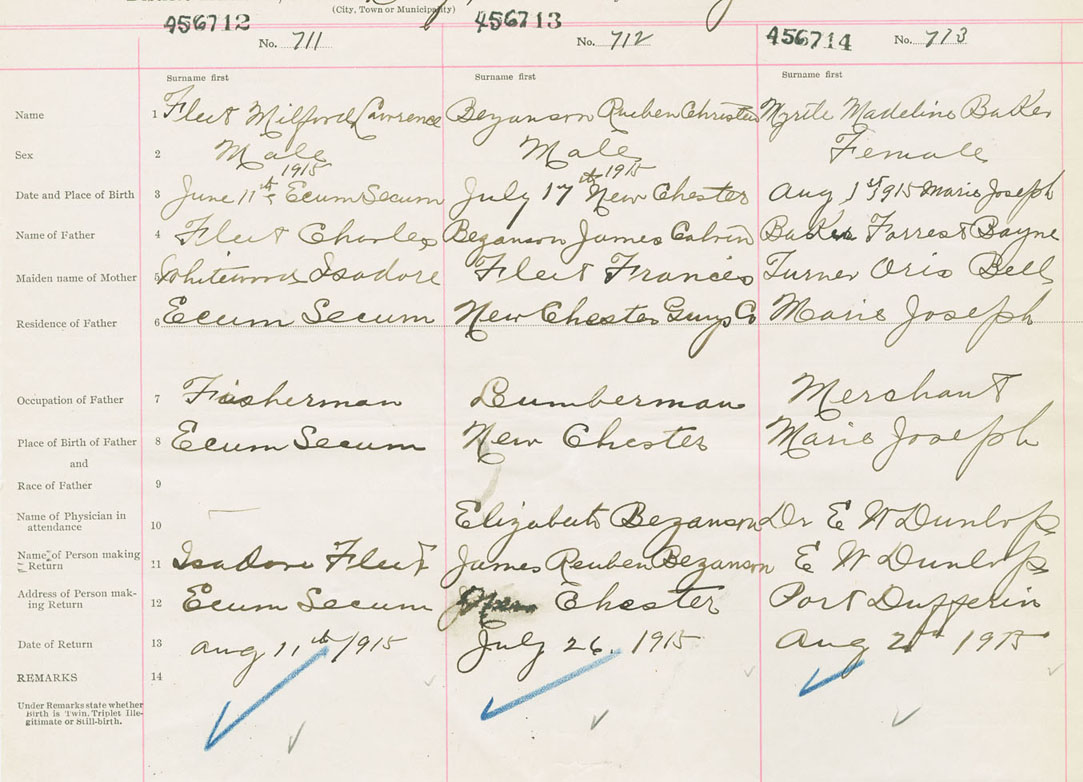 (City, Town or Municipality)
456712 456713 456714
No. 711 No. 712 No. 713
Surname first Surname first Surname first
Name 1 Fleet Milford Lawrence Bezanson Reuben Christen Myrtle Madeline Baker
Sex 2 Male Male Female
Date and Place of Birth 3 June 11th 1915 Ecum Secum July 17th 1915 New Chester Aug 1st 1915 Marie Joseph
Name of Father 4 Fleet Charles Bezanson James Calvin Baker Forrest Bayne
Maiden name of Mother 5 Whitewood Isadore Fleet Frances Turner Oris Bell
Residence of Father 6 Ecum Secum New Chester Guys Co Marie Joseph
Occupation of Father 7 Fisherman Lumberman Merchant
Place of Birth of Father 8 Ecum Secum New Chester Marie Joseph
and
Race of Father 9
Name of Physician in
attendance 10 Elizabeth Bezanson Dr E W Dunlop
Name of Person making
Return 11 Isadore Fleet James Reuben Bezanson E W Dunlop
Address of Person mak-
ing Return 12 Ecum Secum New Chester Port Dufferin
Date of Return 13 Aug 11th 1915 July 26. 1915 Aug 2 1915
REMARKS 14
Under Remarks state whether
Birth is Twin, Triplet Ille-
gitimate or Still-birth.